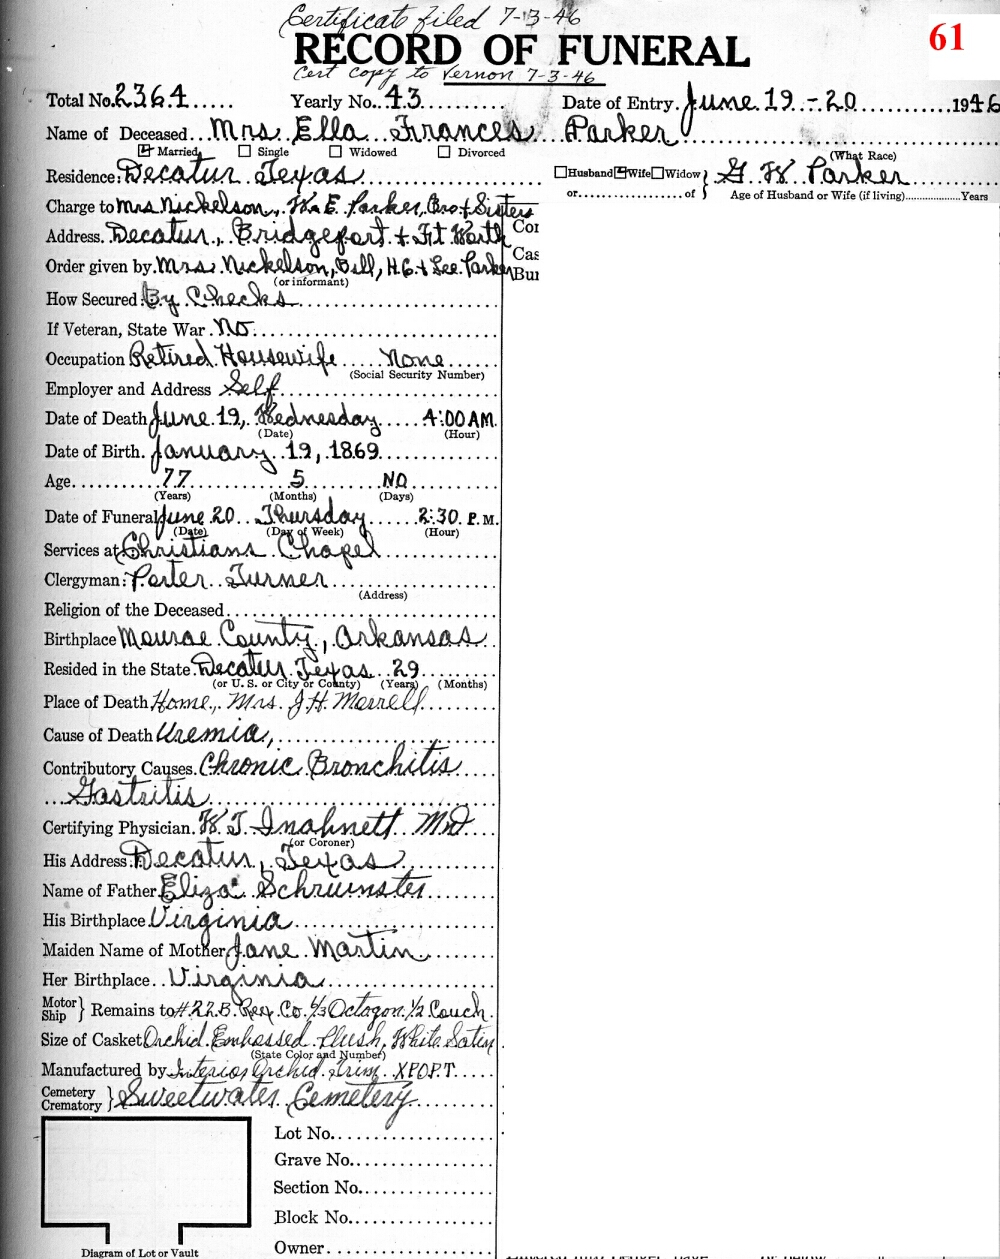 Certificate filed 7-3-46
61
RECORD OF FUNERAL
Cert copy to Vernon 7-3-46
Total No. 2364 Yearly No. 43 Date of Entry. June 19 - 20 1946
Name of Deceased Mrs Ella Frances Parker
Married Single Widowed Divorced (What Race)
Residence: Decatur Texas Husband Wife Widow } G. W. Parker
or of Age of Husband or Wife (if living) Years
Charge to Mrs Nickelson, W. E. Parker, Bro + Sisters
Address. Decatur, Bridgeport + Ft Worth
Order given by Mrs. Nickelson, Bill, H.G. + Lee Parker
(or informant)
How Secured. By Checks
If Veteran, State War. No
Occupation Retired Housewife None
(Social Security Number)
Employer and Address Self
Date of Death June 19, Wednesday 4:00 AM.
(Date) (Hour)
Date of Birth. January 19, 1869
Age 77 5 NO
(Years) (Months) (Days)
Date of Funeral June 20 Thursday 2:30 P.M.
(Date) (Day of Week) (Hour)
Services at Christians Chapel
Clergyman: Porter Turner
(Address)
Religion of the Deceased
Birthplace Monroe County, Arkansas
Resided in the State. Decatur Texas 29
(or U. S. or City or County) (Years) (Months)
Place of Death Home, Mrs. J. H. Merrell
Cause of Death Uremia,
Contributory Causes. Chronic Bronchitis
Gastritis
Certifying Physician. W. T. MD
(or Coroner)
His Address. Decatur, Texas
Name of Father Eliza
His Birthplace Virginia
Maiden Name of Mother Jane Martin
Her Birthplace Virginia
Motor Ship } Remains to #22B. Rex. Co. 6/3 Octogon 1/2 Couch
Size of Casket Orchid Embossed Plush, White Satin
(State Color and Number)
Manufactured by Interior Orchid Trim XPOPT
Cemetery Crematory } Sweetwater Cemetery
Lot No.
Grave No.
Section No.
Block No.
Owner
Diagram of Lot or Vault